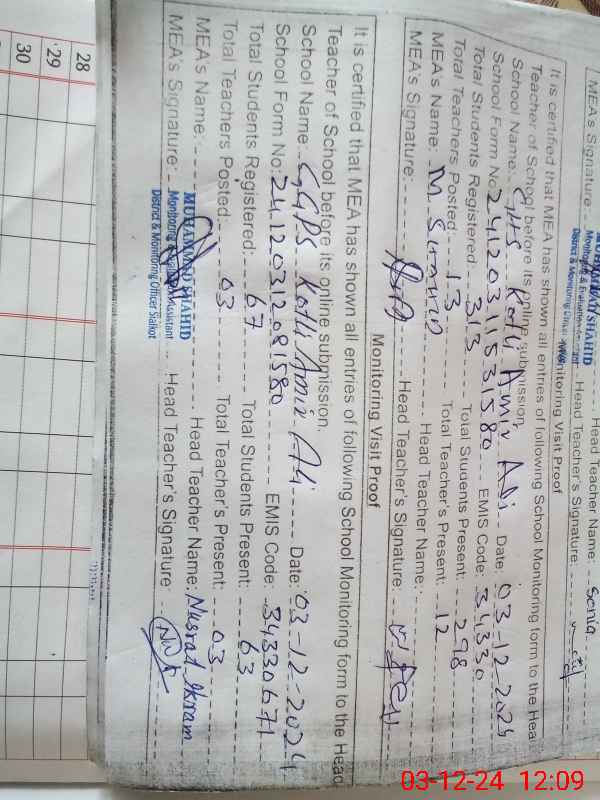 MEA's Signature:
MUHAMMAD SHAHID
Monitoring & Evaluation Assistant
District & Monitoring Officer
Head Teacher Name: Sonia
Head Teacher's Signature:
Monitoring Visit Proof
It is certified that MEA has shown all entries of following School Monitoring form to the Head
Teacher of School before its online submission.
School Name: GHS Kotli Amir Ali Date: 03-12-2024
School Form No: EMIS Code: 34330
Total Students Registered: 313 Total Students Present: 298
Total Teachers Posted: 13 Total Teacher's Present: 12
MEA's Name: M. Head Teacher Name:
MEA's Signature: Head Teacher's Signature:
Monitoring Visit Proof
It is certified that MEA has shown all entries of following School Monitoring form to the Head
Teacher of School before its online submission.
School Name: GGPS Kotli Amir Ali Date: 03-12-2024
School Form No: 24120312081580 EMIS Code: 34330671
Total Students Registered: 67 Total Students Present: 63
Total Teachers Posted: 03 Total Teacher's Present: 03
MEA's Name: MUHAMMAD SHAHID Head Teacher Name: Nusrat Ikram
MEA's Signature: Monitoring Assistant Head Teacher's Signature:
District & Monitoring Officer Sialkot
28
29
30
03-12-24 12:09